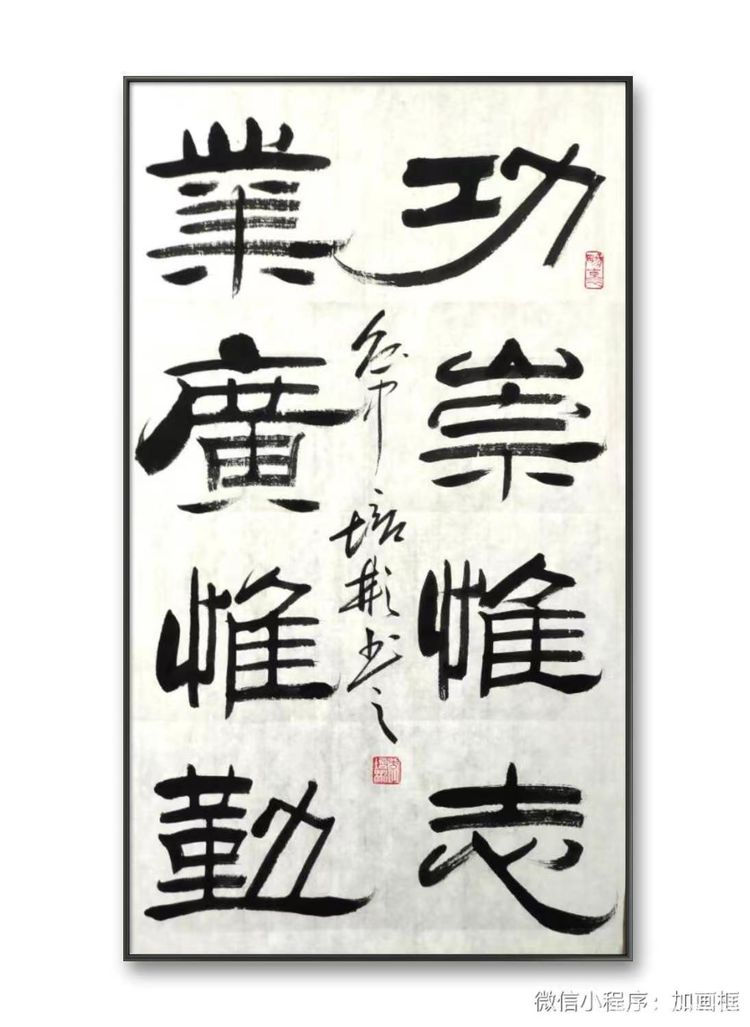 功崇惟志
業廣惟勤
培彬书之
微信小程序：加画框